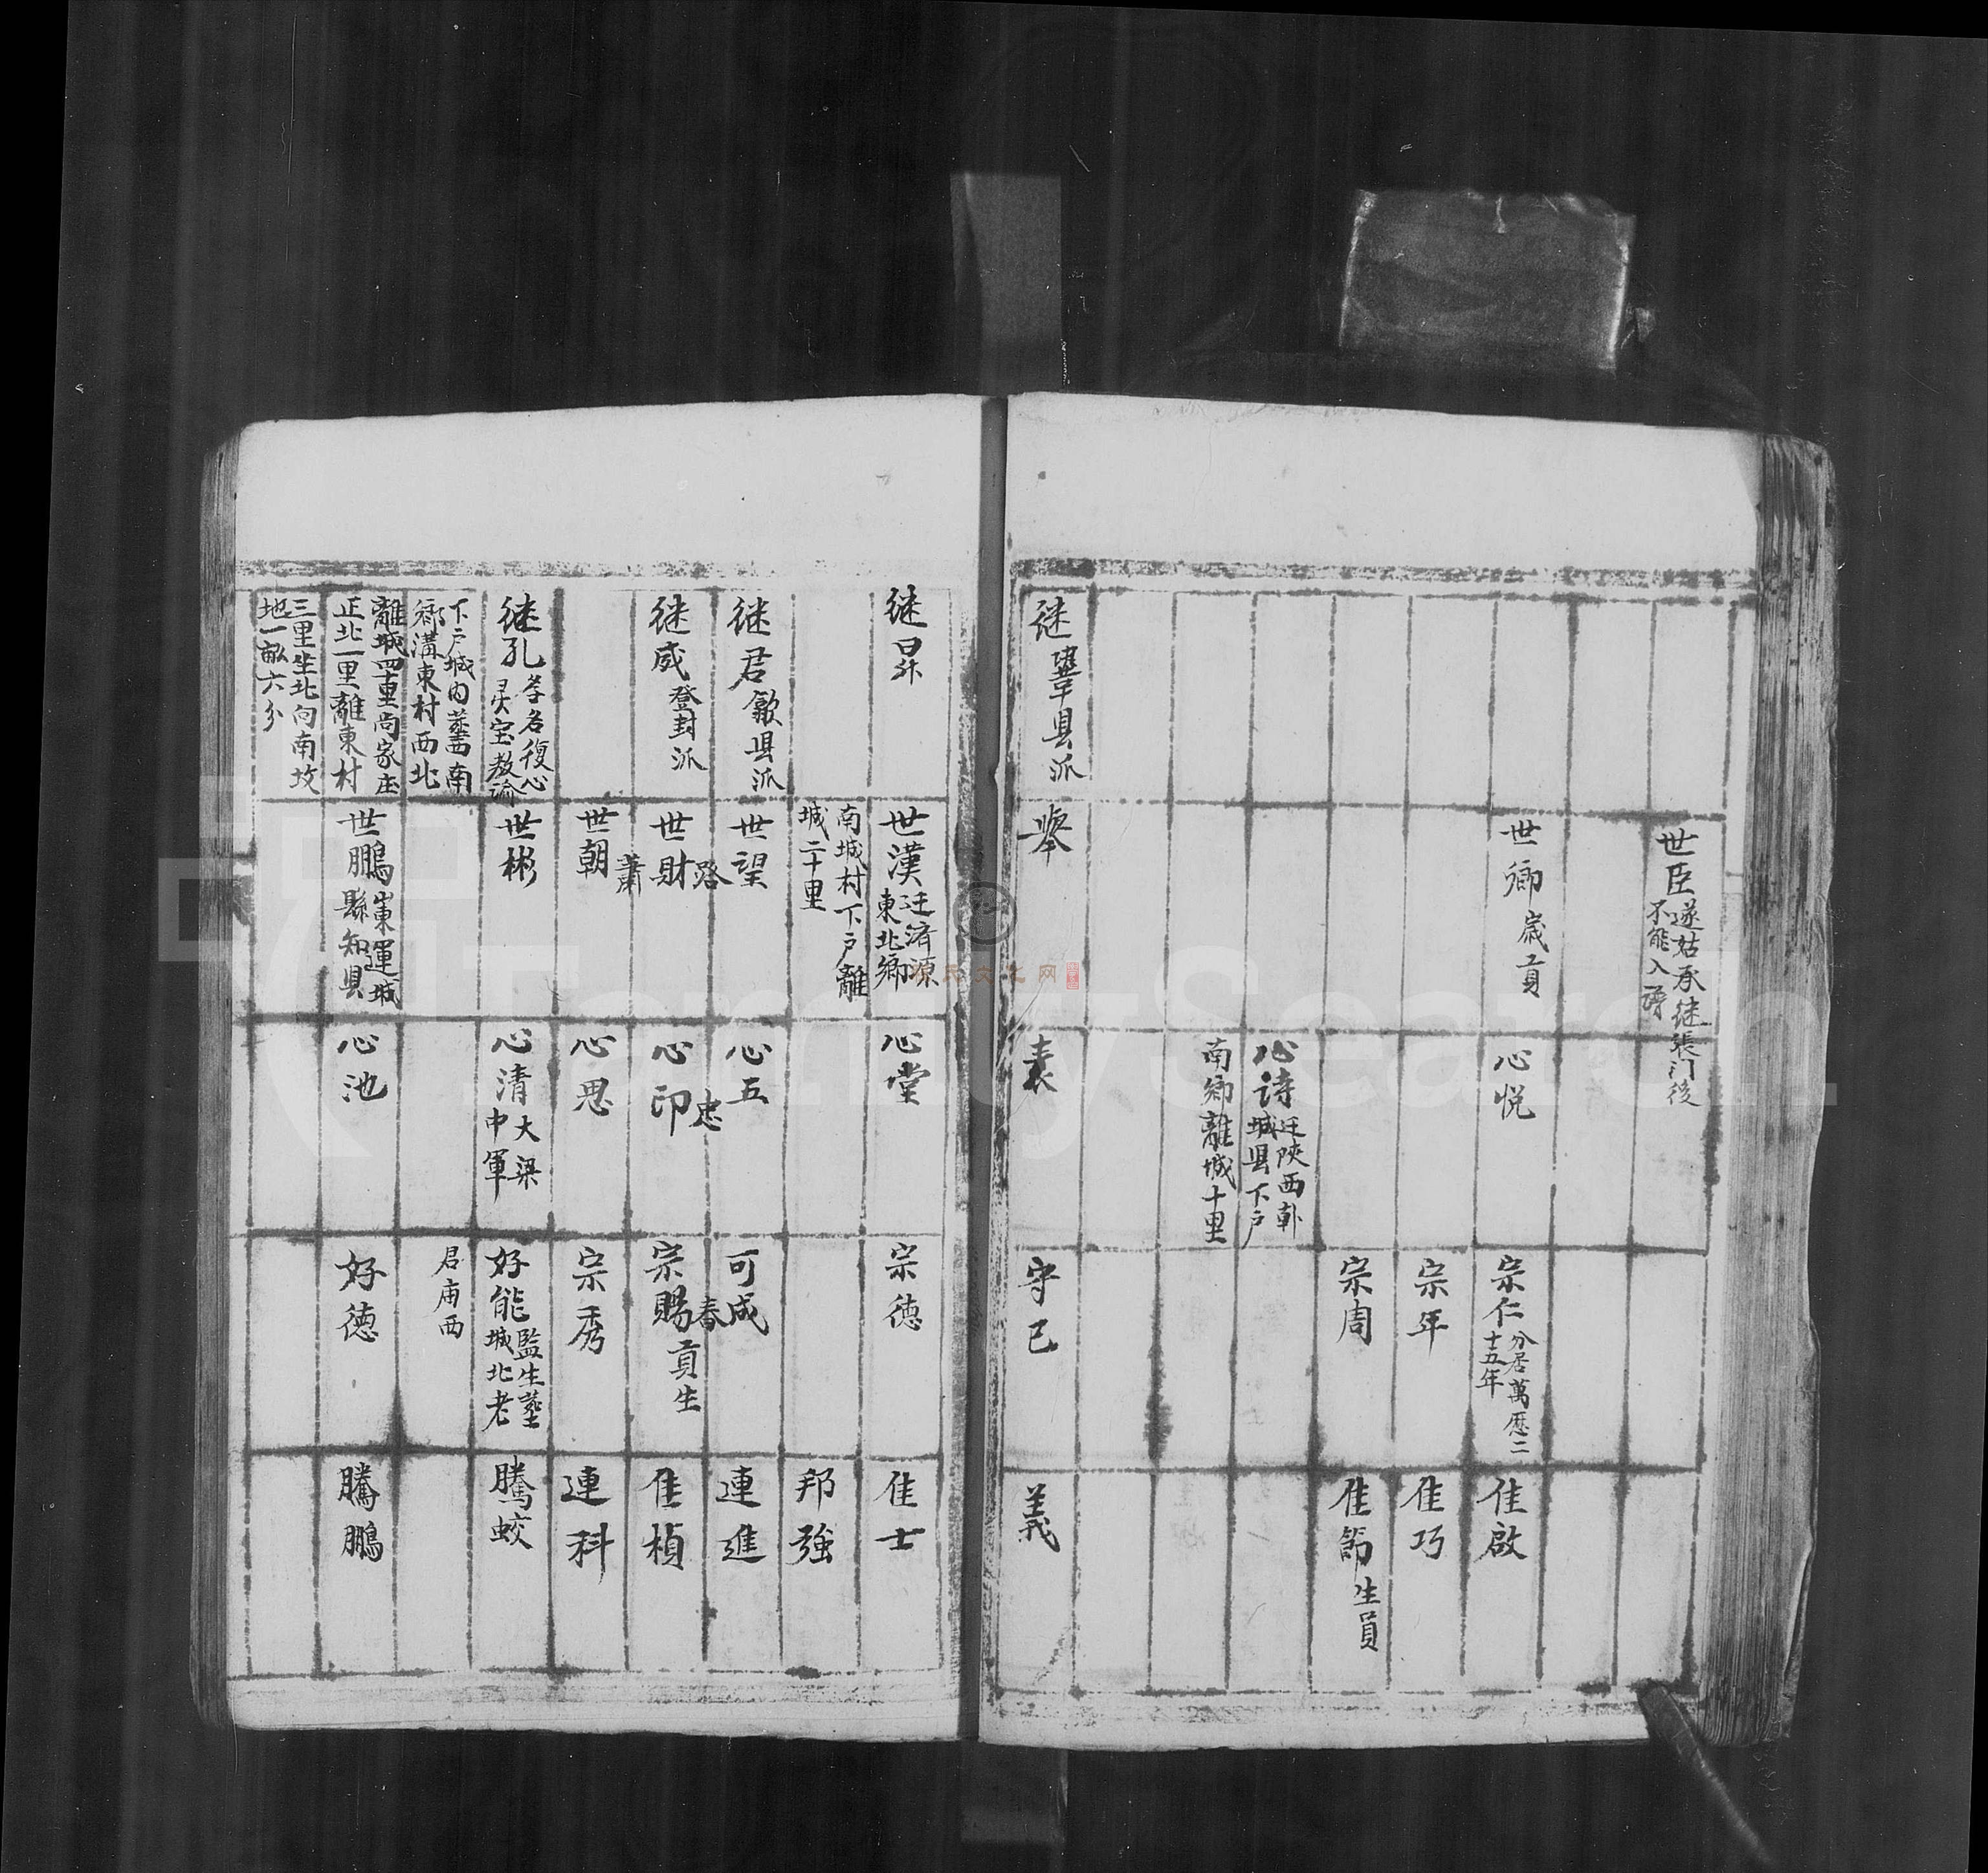 世臣遂姑承继張门後
不能入譜
世卿歲貢
心悦
宗仁分居萬歷二
十五年
隹啟
宗年
隹巧
宗周
隹節生員
心诗迁陝西
城县下户
南鄉離城十里
继鞏县派
舉
表
守己
義
继昇
世漢迁濟源
東北鄉
心堂
宗德
隹士
南城村下户離
城二十里
邦強
继君歙县派
世望
路
心五
忠
可成
春
連進
继威登封派
世財
蕭
心印
宗賜貢生
隹楨
世朝
心思
宗秀
連科
继孔孝名復心
灵宝教諭
世彬
心清大梁
中軍
好能監生塟
城北老
騰蛟
下户城内塟南
鄉溝東村西北
君庙西
離城四里尚家庄
正北一里離東村
世鵬東運城
縣知县
心池
好德
騰鵬
三里坐北向南坟
地一畝六分
FamilySearch